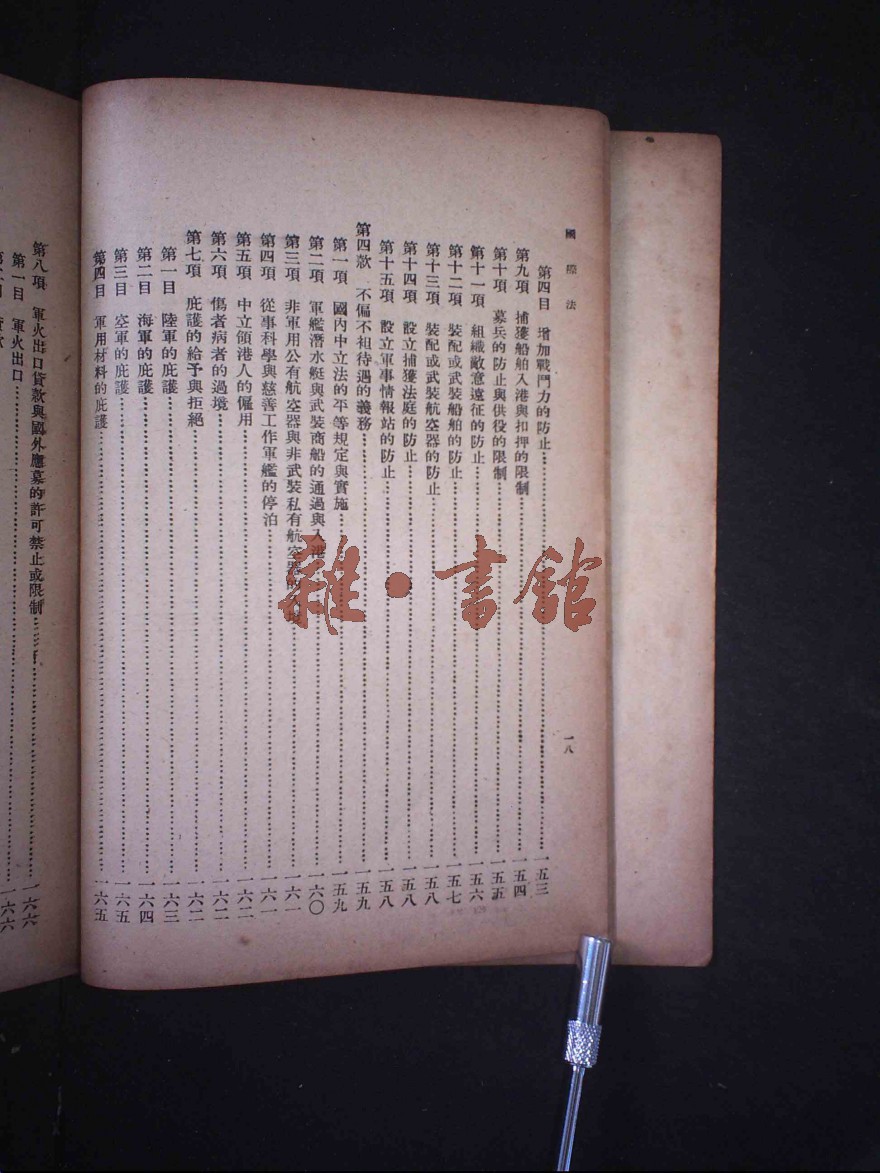 國際法
一八
第四目 增加戰鬥力的防止……一五三
第九項 捕獲船舶入港與扣押的限制……一五四
第十項 募兵的防止與供役的限制……一五五
第十一項 組織敵意遠征的防止……一五六
第十二項 裝配或武裝船舶的防止……一五七
第十三項 裝配或武裝航空器的防止……一五八
第十四項 設立捕獲法庭的防止……一五八
第十五項 設立軍事情報站的防止……一五八
第四款 不偏不袒待遇的義務……一五九
第一項 國內中立法的平等規定與實施……一五九
第二項 軍艦潛水艇與武裝商船的通過與入港……一六〇
第三項 非軍用公有航空器與非武裝私有航空器……一六一
第四項 從事科學與慈善工作軍艦的停泊……一六一
第五項 中立領港人的僱用……一六二
第六項 傷者病者的過境……一六二
第七項 庇護的給予與拒絕……一六二
第一目 陸軍的庇護……一六三
第二目 海軍的庇護……一六四
第三目 空軍的庇護……一六五
第四目 軍用材料的庇護……一六五
第八項 軍火出口貸款與國外應募的許可禁止或限制……一六六
第一目 軍火出口……一六六
雜·書館